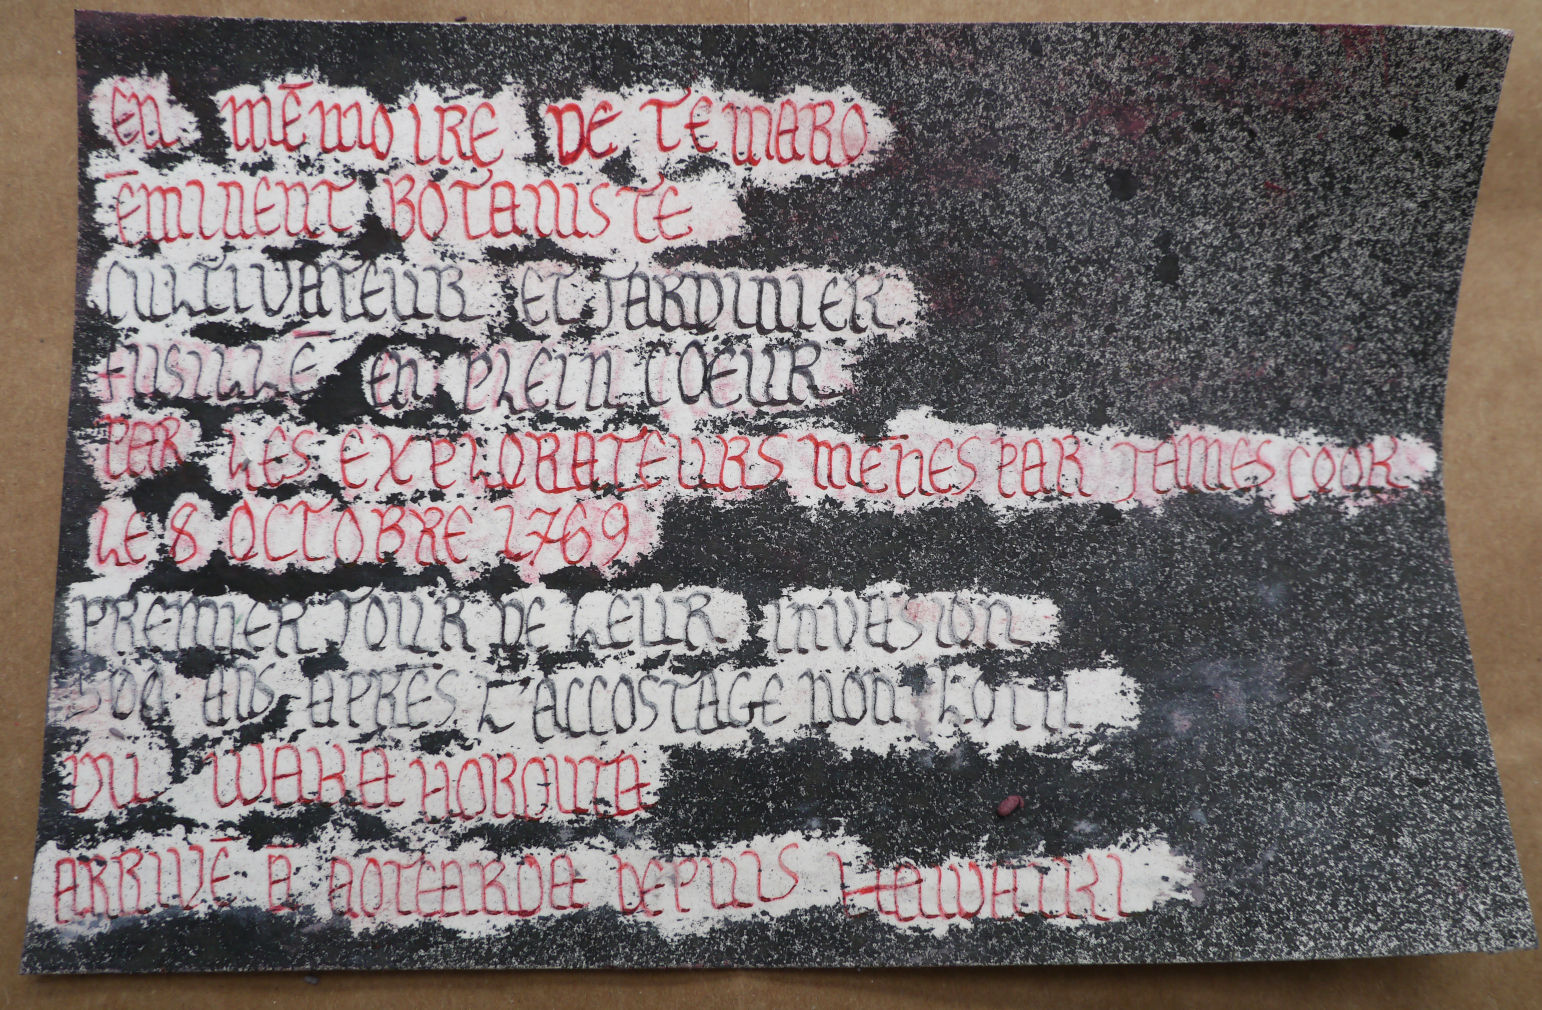 EN MÉMOIRE DE TE MARO
ÉMINENT BOTANISTE
CULTIVATEUR ET JARDINIER
FUSILLÉ EN PLEIN CŒUR
PAR LES EXPLORATEURS MENÉS PAR JAMES COOK
LE 8 OCTOBRE 1769
PREMIER JOUR DE LEUR INVASION
500 ANS APRÈS L'ACCOSTAGE NON
DU WAKA HOROUTA
ARRIVÉ À AOTEAROA DEPUIS HAWAIKI